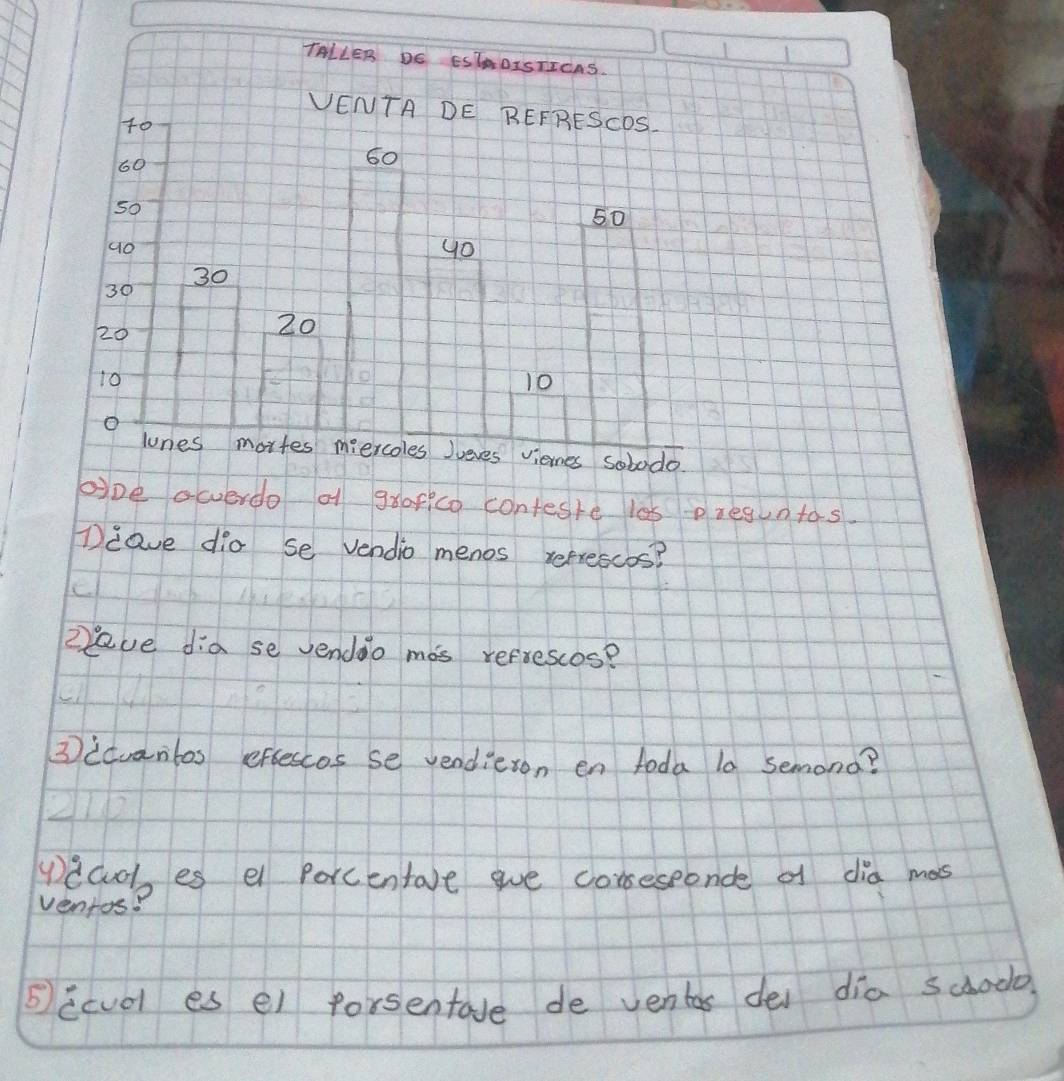 TALLER DE ESTADISTICAS.
VENTA DE REFRESCOS.
70
60
50
40
30
20
10
0
30
20
60
40
10
50
lunes martes miercoles Jueves viernes sabado.
a) De acuerdo al grafico conteste las preguntas.
1) ¿Que dia se vendio menos refrescos?
2) ¿Que dia se vendio más refrescos?
3) ¿cuantos efrescos se vendieron en toda la semana?
210
4) ¿cual es el Porcentaje que corresponde al dia mas
ventas?
5) ¿cual es el Porsentaje de ventas del dia sabado.